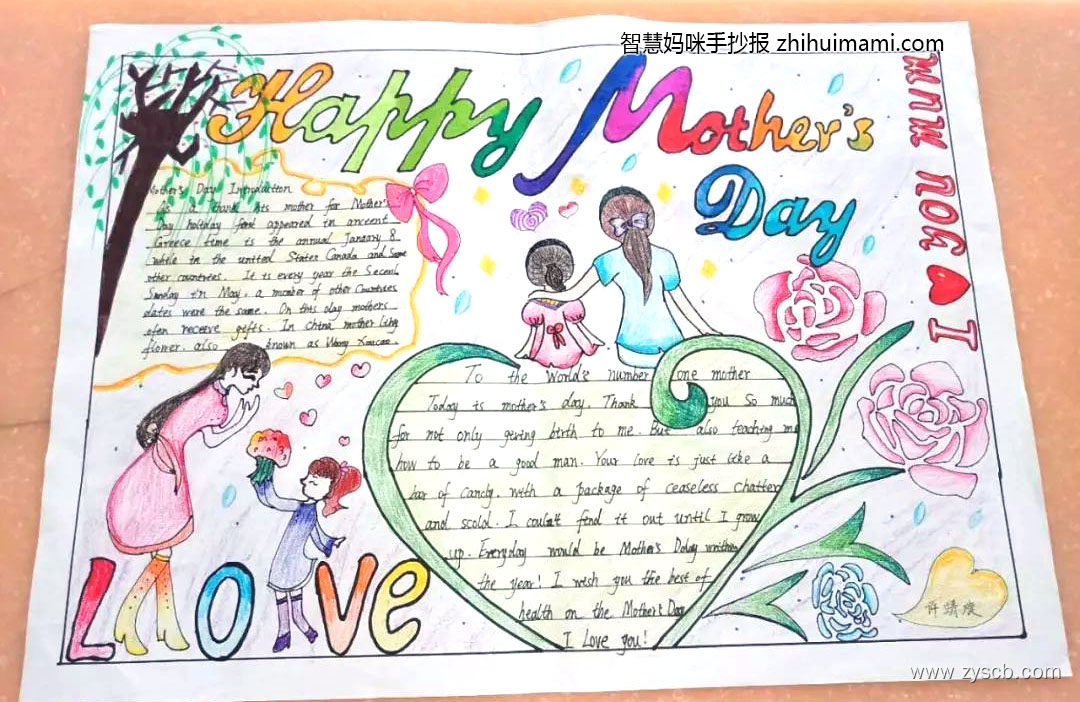 智慧妈咪手抄报 zhihuimami.com
Happy Mother's
Day
I ♥ YOU MUM
Mother's Day Introduction
As a thank his mother for Mother's
Day holiday first appeared in ancent
Greece time is the annual January 8
while in the united States Canada and Some
other countrees. It is every year the Second
Sunday in May, a number of other Countries
dates were the same. On this day mothers
ofen receive gifts. In China mother
flower, also known as
To the World's number one mother
Today is mother's day. Thank you So much
for not only giving birth to me. But also teaching me
how to be a good man. Your love is just like a
bar of candy. with a package of ceaseless chatter
and scold. I could't find it out until I grow
up. Everyday would be Mother's
the year! I wish you the best of
health on the Mother's Day
I Love you!
LOVE
www.zyscb.com